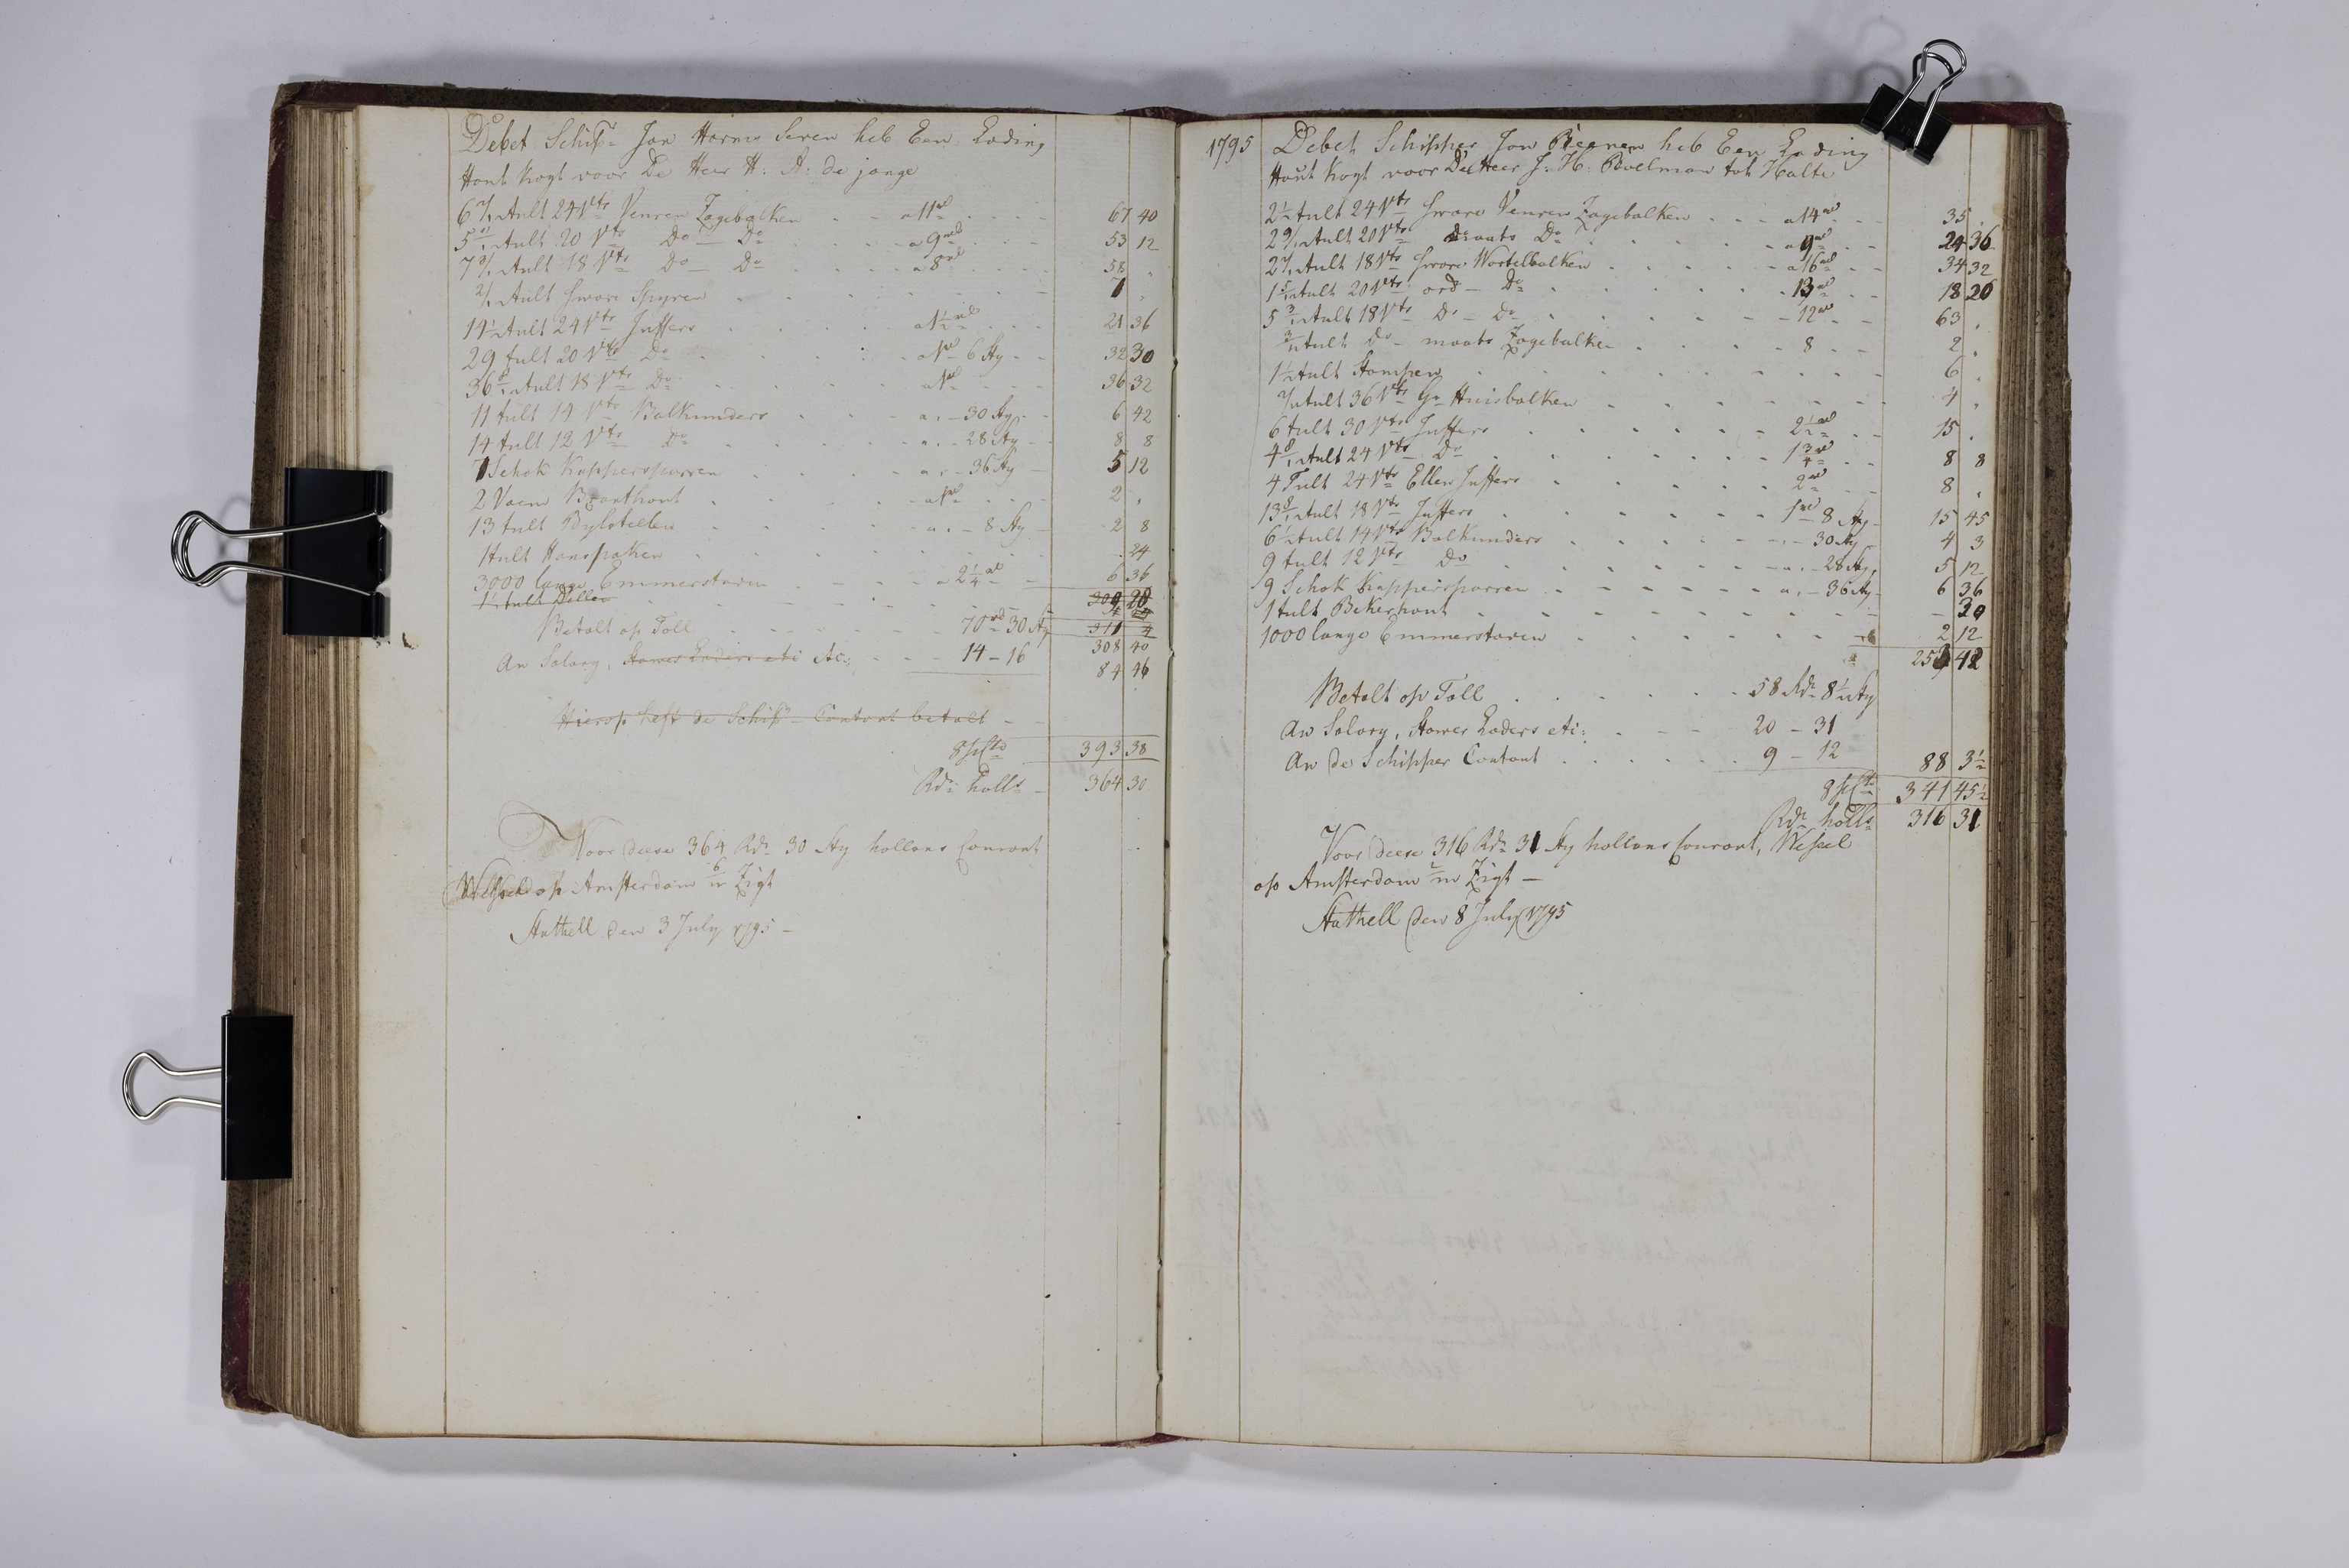 Debet Schipr Jan Harms Seven heb Een Lading
Hout kogt voor De Heer H: A: de jonge
6 7/1 Tult 24 Vts Venren Zagebalken a 11 rd 67 40
5 11/1 Tult 20 Vts Do Do a 9 rd 53 12
7 3/1 Tult 18 Vts Do Do a 8 rd 58 "
2/1 Tult sware Spyren 7 "
14 1/2 Tult 24 Vts Juffers a 1 1/2 rd 21 36
29 tult 20 Vts Do a 1 rd 6 Sty 32 30
36 8/1 Tult 18 Vts Do a 1 rd 36 32
11 tult 14 Vts Balkunders a - 30 Sty 6 42
14 tult 12 Vts Do a - 28 Sty 8 8
7 Schok Kappersparren a - 36 Sty 5 12
2 Vaem Branthout a 1 rd 2 "
13 tult Bylstellen a - 8 Sty 2 8
1 tult Hanspaken 24
3000 lange Emmerstaven a 2 1/4 rd 6 36
1 1/2 tult Dellen 309 28
Betalt op Toll 70 rd 30 Sty 311 4
308 40
An Salary, Stawer Laders etc: etc: 14 - 16 84 46
Hierop heft de Schipr Contant betalt
8 pCto 393 38
Rdr holls 364 30
Voor deese 364 Rdr 30 Sty hollans Courant
Wessel op Amsterdam 6/m Zigt
Stathell den 3 July 1795
1795 Debet Schipper Jan Beenen heb Een Lading
Hout kogt voor De Heer J: H: Povelman tot Halte
2 1/2 Tult 24 Vts sware Venren Zagebalken a 14 rd 35 "
2 9/1 Tult 20 Vts maats Do a 9 rd 24 36
2 2/1 Tult 18 Vts sware Wortelbalken a 16 rd 34 32
1 5/1 Tult 20 Vts ord Do 13 rd 18 26
5 3/1 Tult 18 Vts Do Do 12 rd 63 "
3/1 Tult Do maats Zagebalken 8 2 "
1 1/2 Tult Stampen 6 "
2/1 Tult 36 Vts Gr Huisbalken 4 "
6 tult 30 Vts Juffers 2 1/2 rd 15 "
4 8/1 Tult 24 Vts Do 1 3/4 rd 8 8
4 Tult 24 Vts Ellen Juffers 2 rd 8 "
13 8/1 Tult 18 Vts Juffers 1 rd 8 Sty 15 45
6 1/2 Tult 14 Vts Balkunders - 30 Sty 4 3
9 tult 12 Vts Do a - 28 Sty 5 12
9 Schok Kappersparren a - 36 Sty 6 36
1 tult Bekerhout - 30
1000 lange Emmerstaven 2 12
253 42
Betalt op Toll 58 Rdr 8 1/2 Sty
An Salary, Stawer Laders etc: 20 - 31
An de Schipper Contant 9 - 12 88 3 1/2
8 pCto 341 45 1/2
Rdr holls 316 31
Voor deese 316 Rdr 31 Sty hollans Courant, Wessel
op Amsterdam 2/m Zigt
Stathell den 8 July 1795